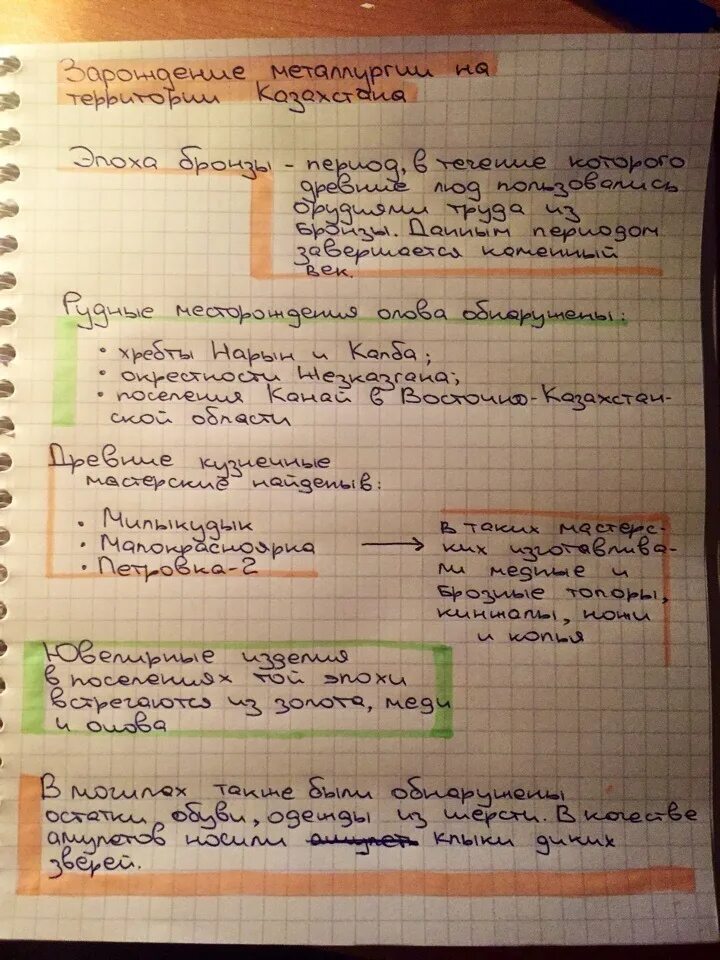 Зарождение металлургии на
территории Казахстана
Эпоха бронзы - период, в течение которого
древние люд пользовались
орудиями труда из
бронзы. Данным периодом
завершается каменный
век.
Рудные месторождения олова обнаружены:
• хребты Нарын и Калба;
• окрестности Жезказгана;
• поселения Канай в Восточно-Казахстан-
ской области
Древние кузнечные
мастерские найдены в:
• Милыкудык
• Малокрасноярка
• Петровка-2
→ в таких мастерс-
ких изготавлива-
ли медные и
брозные топоры,
кинжалы, ножи
и копья
Ювелирные изделия
в поселениях той эпохи
встречаются из золота, меди
и олова
В могилах также были обнаружены
остатки обуви, одежды из шерсти. В качестве
амулетов носили амулет клыки диких
зверей.